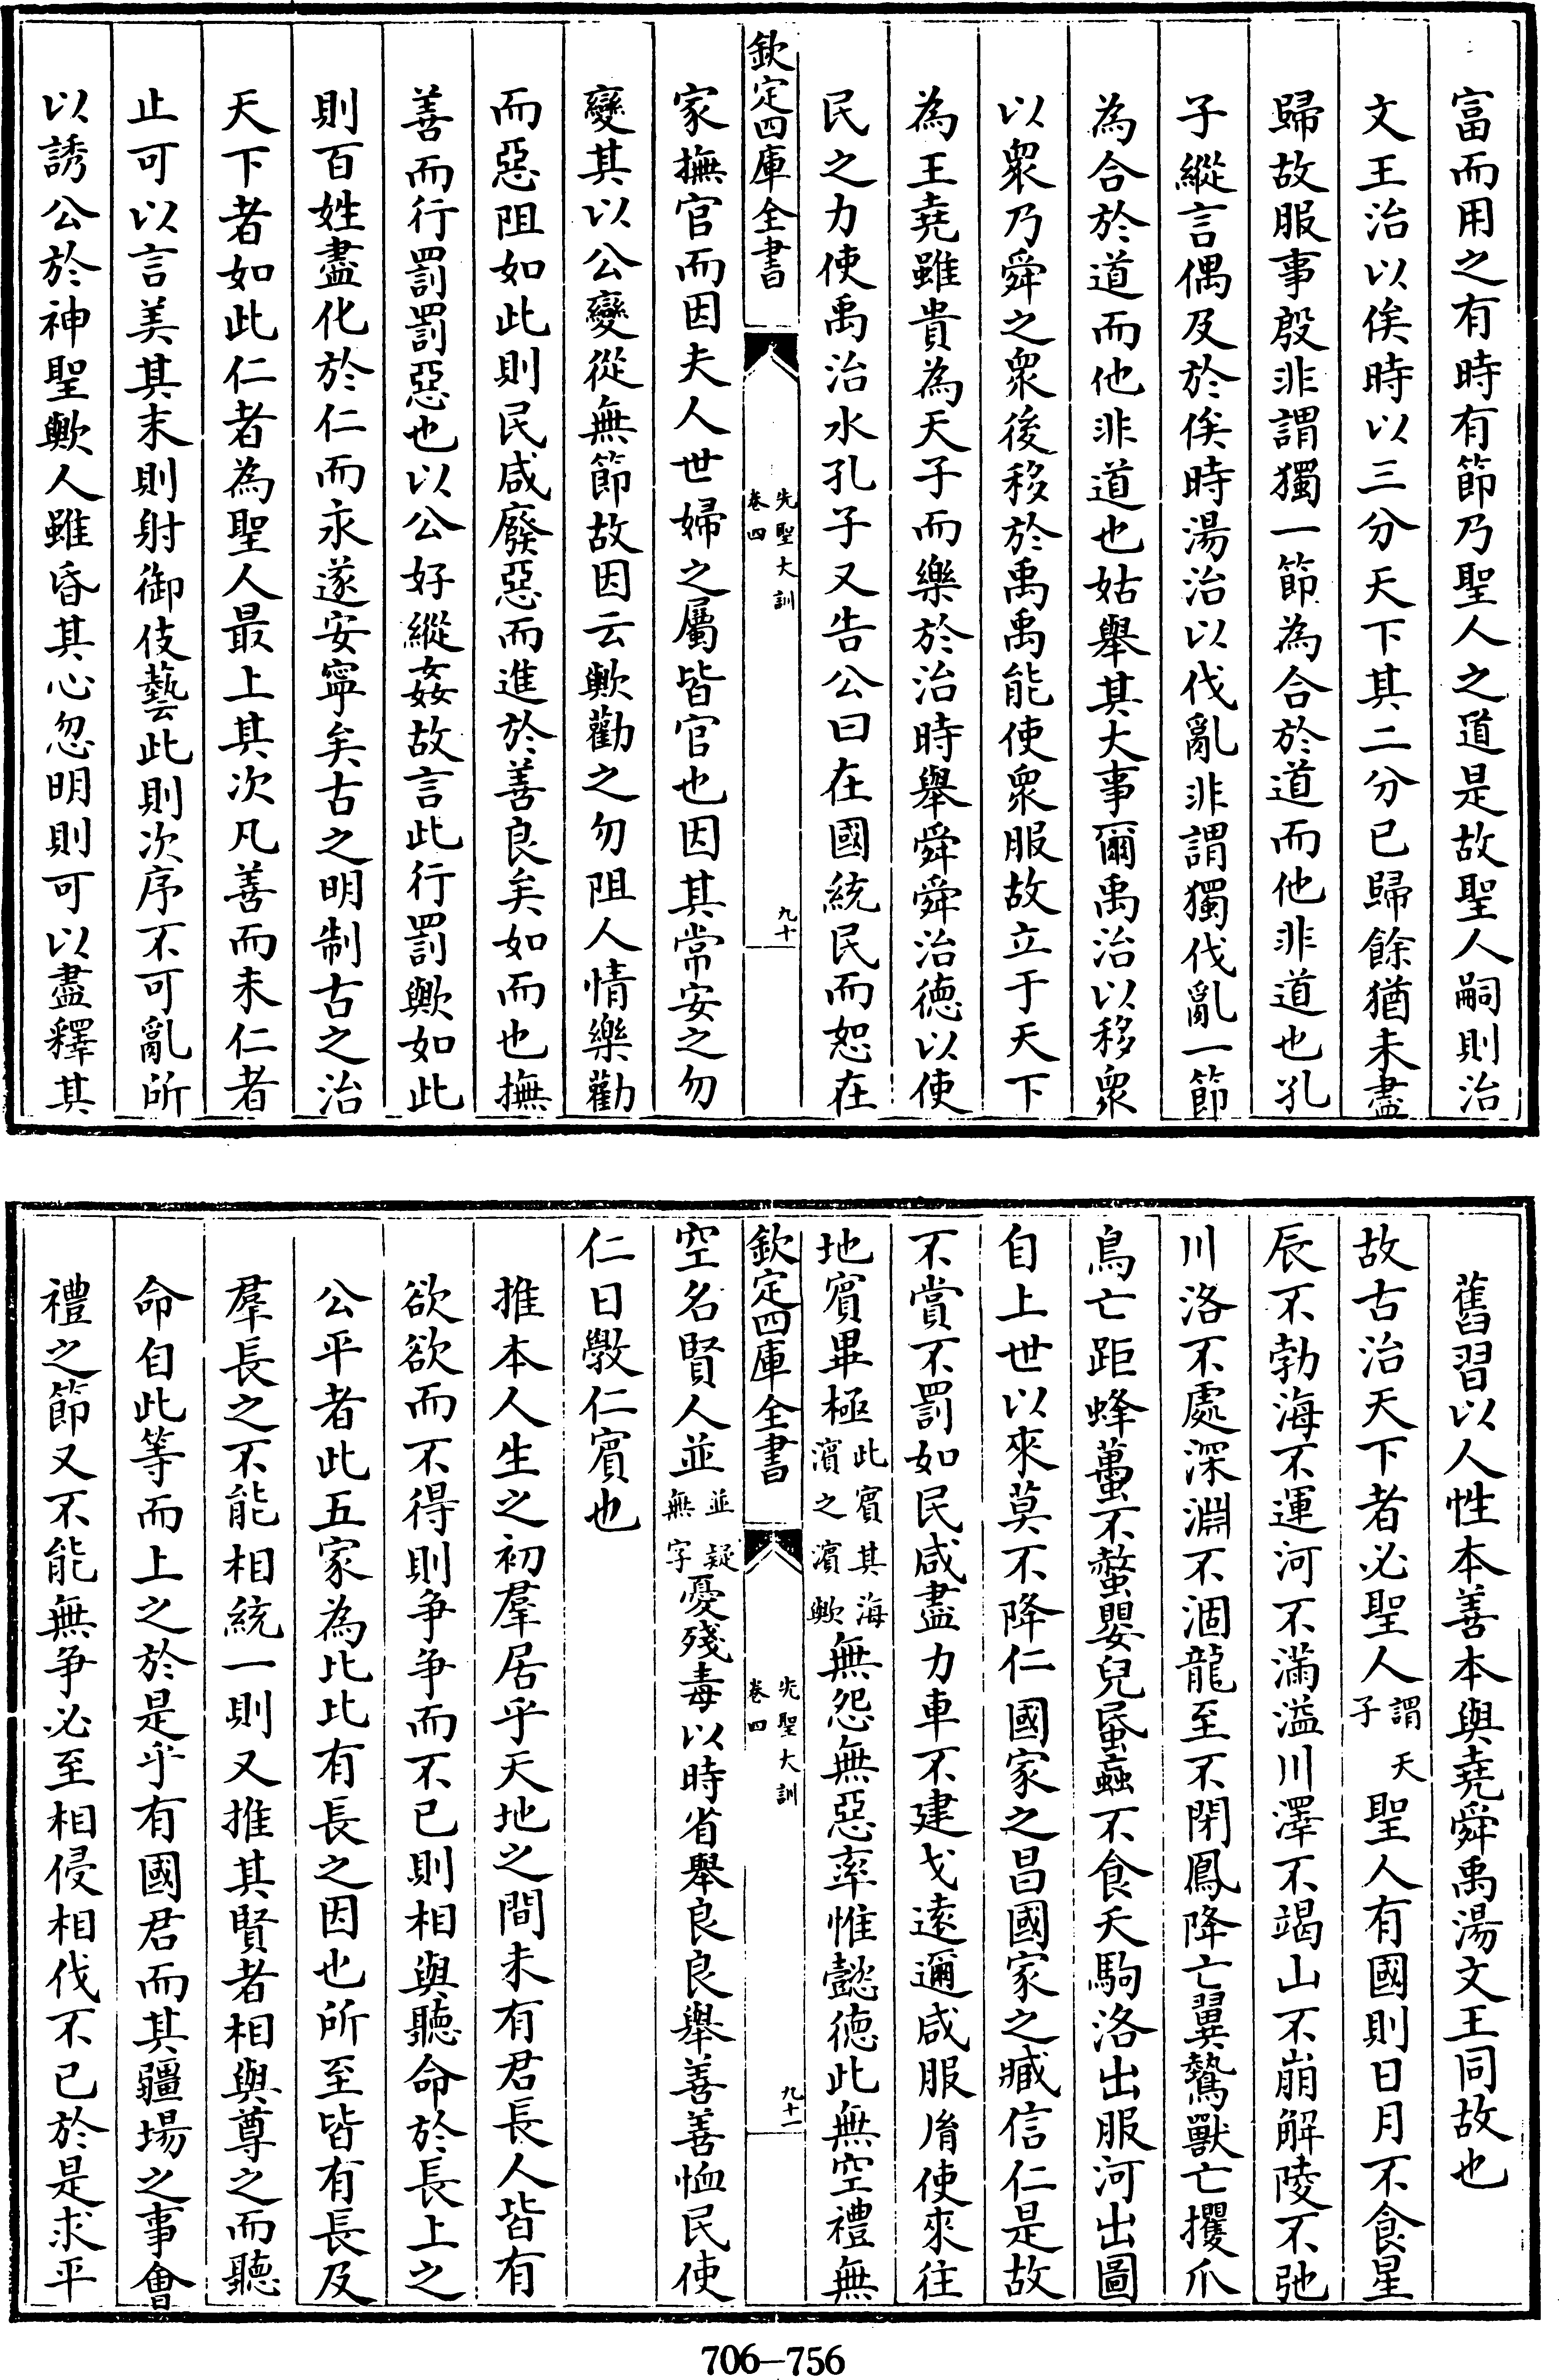 富而用之有時有節乃聖人之道是故聖人嗣則治
文王治以俟時以三分天下其二分已歸餘猶未盡
歸故服事殷非謂獨一節為合於道而他非道也孔
子縱言偶及於俟時湯治以伐亂非謂獨伐亂一節
為合於道而他非道也姑舉其大事爾禹治以移衆
以衆乃舜之衆後移於禹禹能使衆服故立于天下
為王堯雖貴為天子而樂於治時舉舜舜治德以使
民之力使禹治水孔子又告公曰在國統民而恕在
欽定四庫全書
先聖大訓
卷四
九十
家撫官而因夫人世婦之屬皆官也因其常安之勿
變其以公變從無節故因云歟勸之勿阻人情樂勸
而惡阻如此則民咸廢惡而進於善良矣如而也撫
善而行罰罰惡也以公好縱姦故言此行罰歟如此
則百姓盡化於仁而永遂安寧矣古之明制古之治
天下者如此仁者為聖人最上其次凡善而未仁者
止可以言美其末則射御伎藝此則次序不可亂所
以誘公於神聖歟人雖昏其心忽明則可以盡釋其
舊習以人性本善本與堯舜禹湯文王同故也
故古治天下者必聖人謂天子聖人有國則日月不食星
辰不勃海不運河不滿溢川澤不竭山不崩解陵不弛
川洛不處深淵不涸龍至不閉鳳降亡翼鷙獸亡攫爪
鳥亡距蜂蠆不螫嬰兒蟁蝱不食夭駒洛出服河出圖
自上世以來莫不降仁國家之昌國家之臧信仁是故
不賞不罰如民咸盡力車不建戈遠邇咸服胥使來往
地賓畢極此賓其海濱之濱歟無怨無惡率惟懿德此無空禮無
欽定四庫全書
先聖大訓
卷四
九十一
空名賢人並並疑無字憂殘毒以時省舉良良舉善善恤民使
仁日斅仁賓也
推本人生之初羣居乎天地之間未有君長人皆有
欲欲而不得則争争而不已則相與聽命於長上之
公平者此五家為比比有長之因也所至皆有長及
羣長之不能相統一則又推其賢者相與尊之而聽
命自此等而上之於是乎有國君而其疆場之事會
禮之節又不能無争必至相侵相伐不已於是求平
706-756